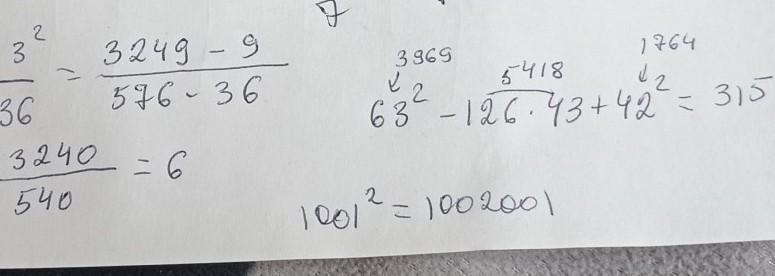 7
3² / 36 = 3249 - 9 / 576 - 36
3240 / 540 = 6
3969 5418 1764
63² - 126 · 43 + 42² = 315
1001² = 1002001